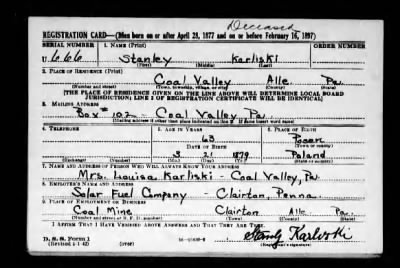 Deceased
REGISTRATION CARD—(Men born on or after April 28, 1877 and on or before February 16, 1897)
SERIAL NUMBER 1. NAME (Print) ORDER NUMBER
U 666 Stanley Karliski
(First) (Middle) (Last)
2. PLACE OF RESIDENCE (Print)
Coal Valley Alle. Pa.
(Number and street) (Town, township, village, or city) (County) (State)
[THE PLACE OF RESIDENCE GIVEN ON THE LINE ABOVE WILL DETERMINE LOCAL BOARD
JURISDICTION; LINE 2 OF REGISTRATION CERTIFICATE WILL BE IDENTICAL]
3. MAILING ADDRESS
Box #102 - Coal Valley, Pa.
[Mailing address if other than place indicated on line 2. If same insert word same]
4. TELEPHONE 5. AGE IN YEARS 6. PLACE OF BIRTH
63
DATE OF BIRTH (Town or county)
3 21 1879 Poland
(Exchange) (Number) (Mo.) (Day) (Yr.) (State or country)
7. NAME AND ADDRESS OF PERSON WHO WILL ALWAYS KNOW YOUR ADDRESS
Mrs. Louisa Karliski - Coal Valley, Pa.
8. EMPLOYER'S NAME AND ADDRESS
Solar Fuel Company - Clairton, Penna.
9. PLACE OF EMPLOYMENT OR BUSINESS
Coal Mine Clairton Alle. Pa.
(Number and street or R. F. D. number) (Town) (County) (State)
I AFFIRM THAT I HAVE VERIFIED ABOVE ANSWERS AND THAT THEY ARE TRUE.
D. S. S. Form 1
(Revised 4-1-42) (over) (Registrant's signature)